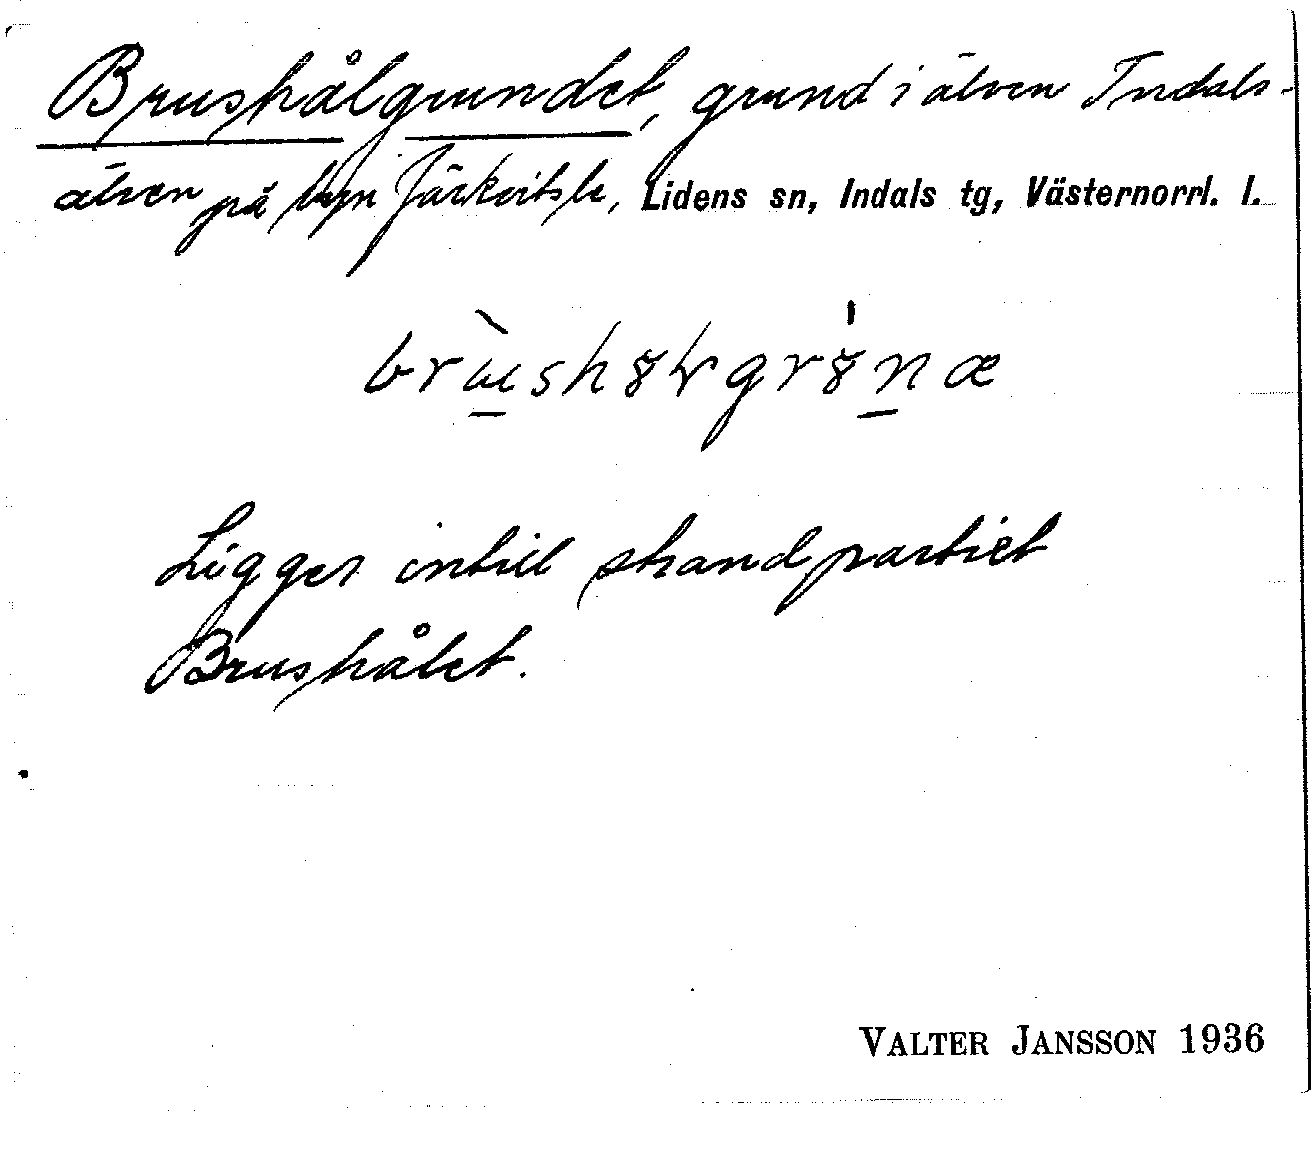 Brushålgrundet, grund i älven Indals-
älven på byn Järkvitsle, Lidens sn, Indals tg, Västernorrl. l.
Ligger intill strandpartiet
Brushålet.
VALTER JANSSON 1936